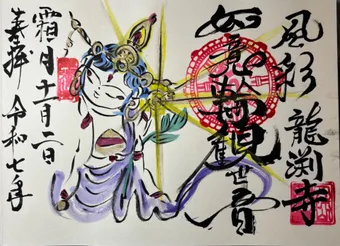 風彩 龍渕寺
如意輪観世音
霜月十一月二日
奉拝 令和七年